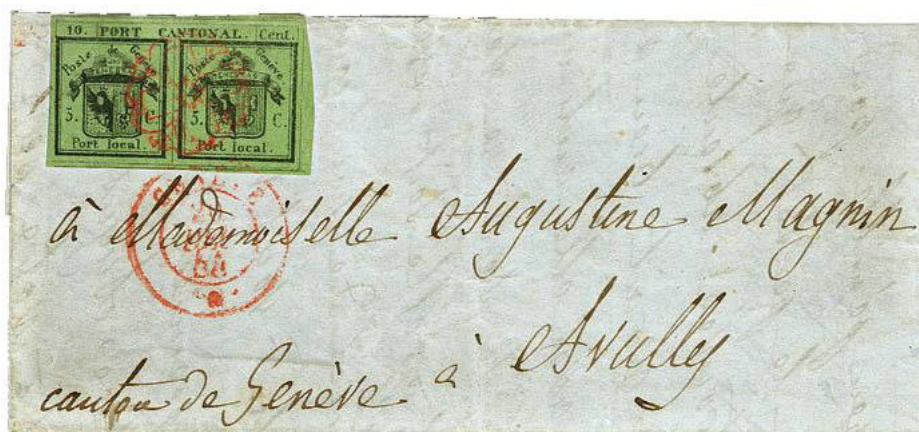 10. PORT CANTONAL. Cent.
Poste de Genève
Poste de Genève
5. C.
5. C.
Port local.
Port local.
à Mademoiselle Augustine Magnin
à Avully
canton de Genève